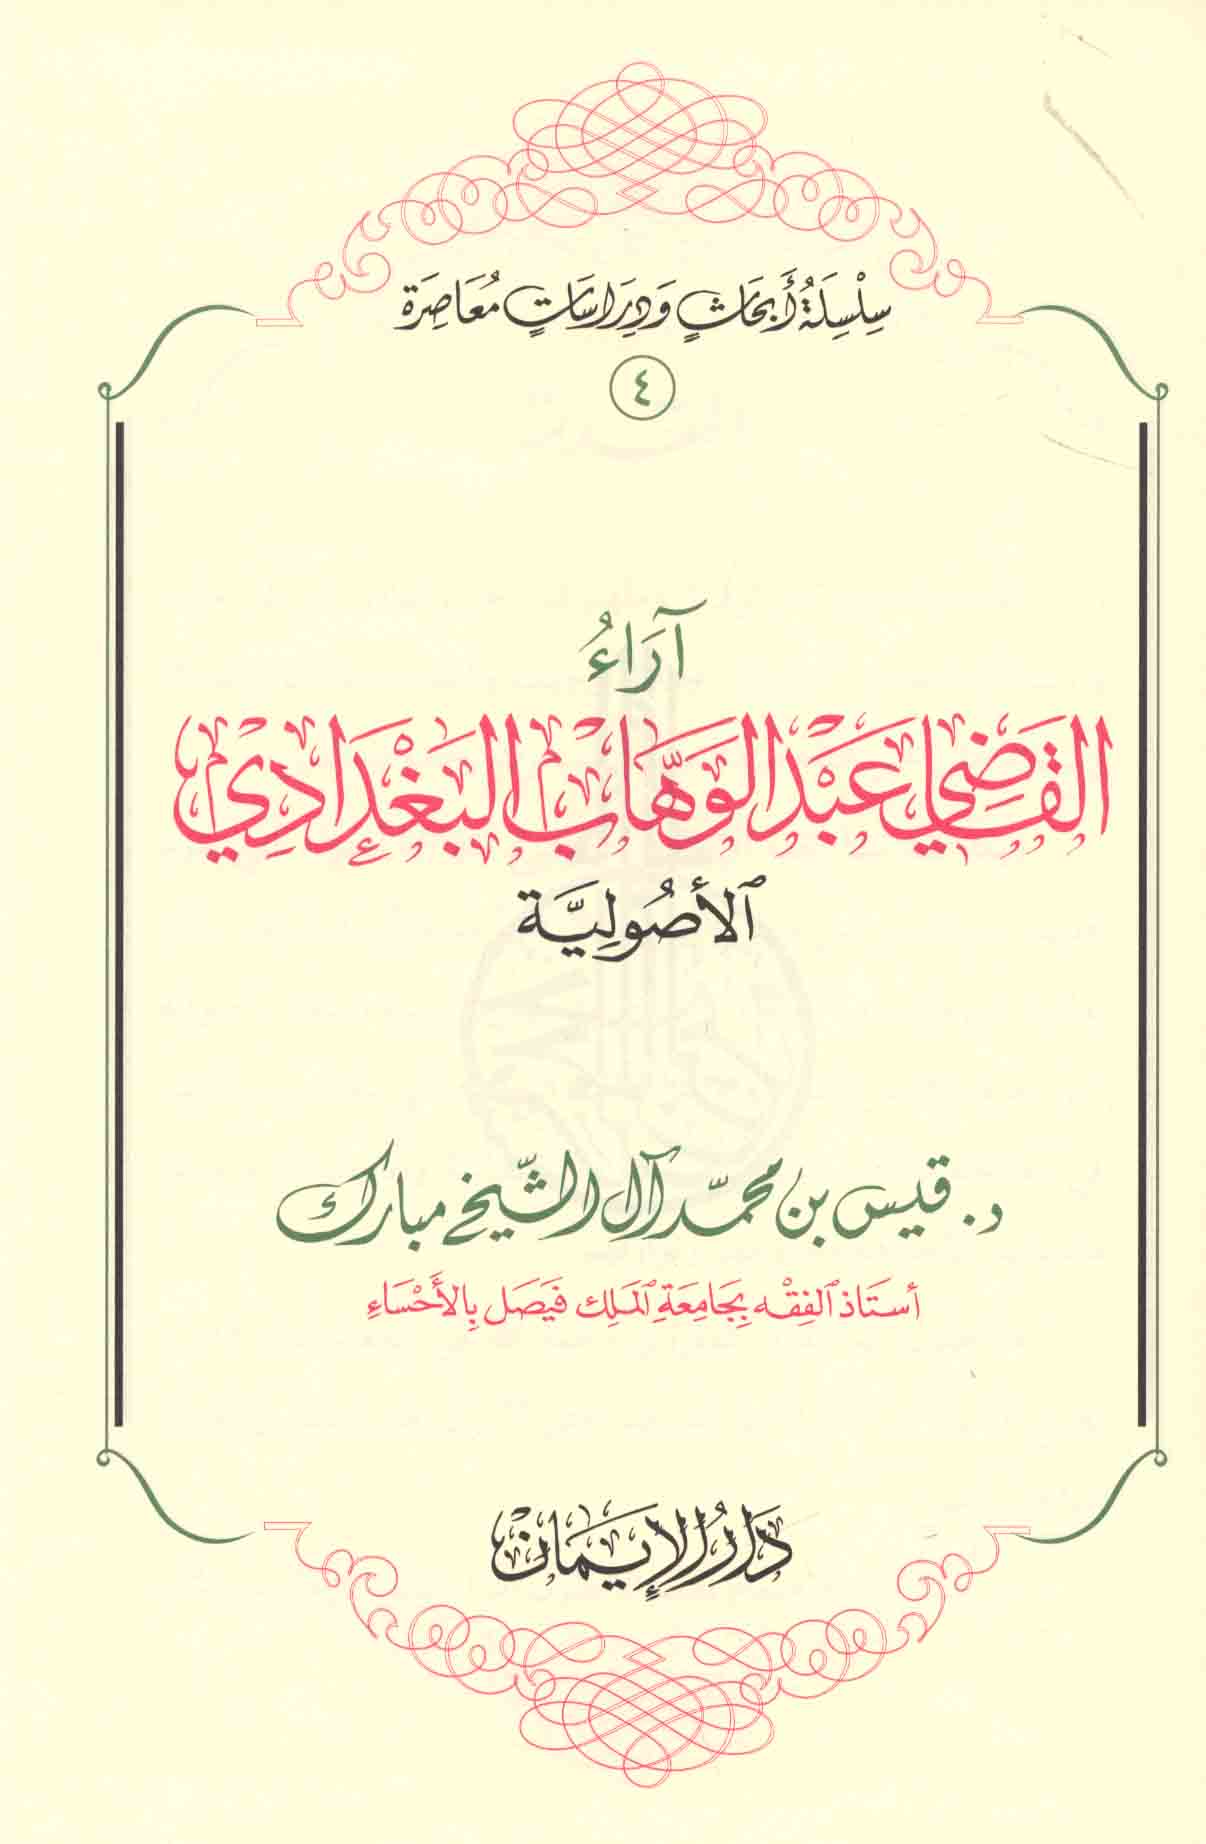 سِلْسِلَةُ أَبْحَاثٍ وَدِرَاسَاتٍ مُعَاصِرَة
٤
آرَاءُ
القَاضِي عَبْدِ الوَهَّابِ البَغْدَادِيِّ
الأُصُولِيَّة
د. قيس بن محمّد آل الشّيخ مبارك
أستَاذ الفِقْه بِجَامِعَةِ المَلِك فَيصَل بِالأَحْسَاءِ
دَارُ الإِيمَان